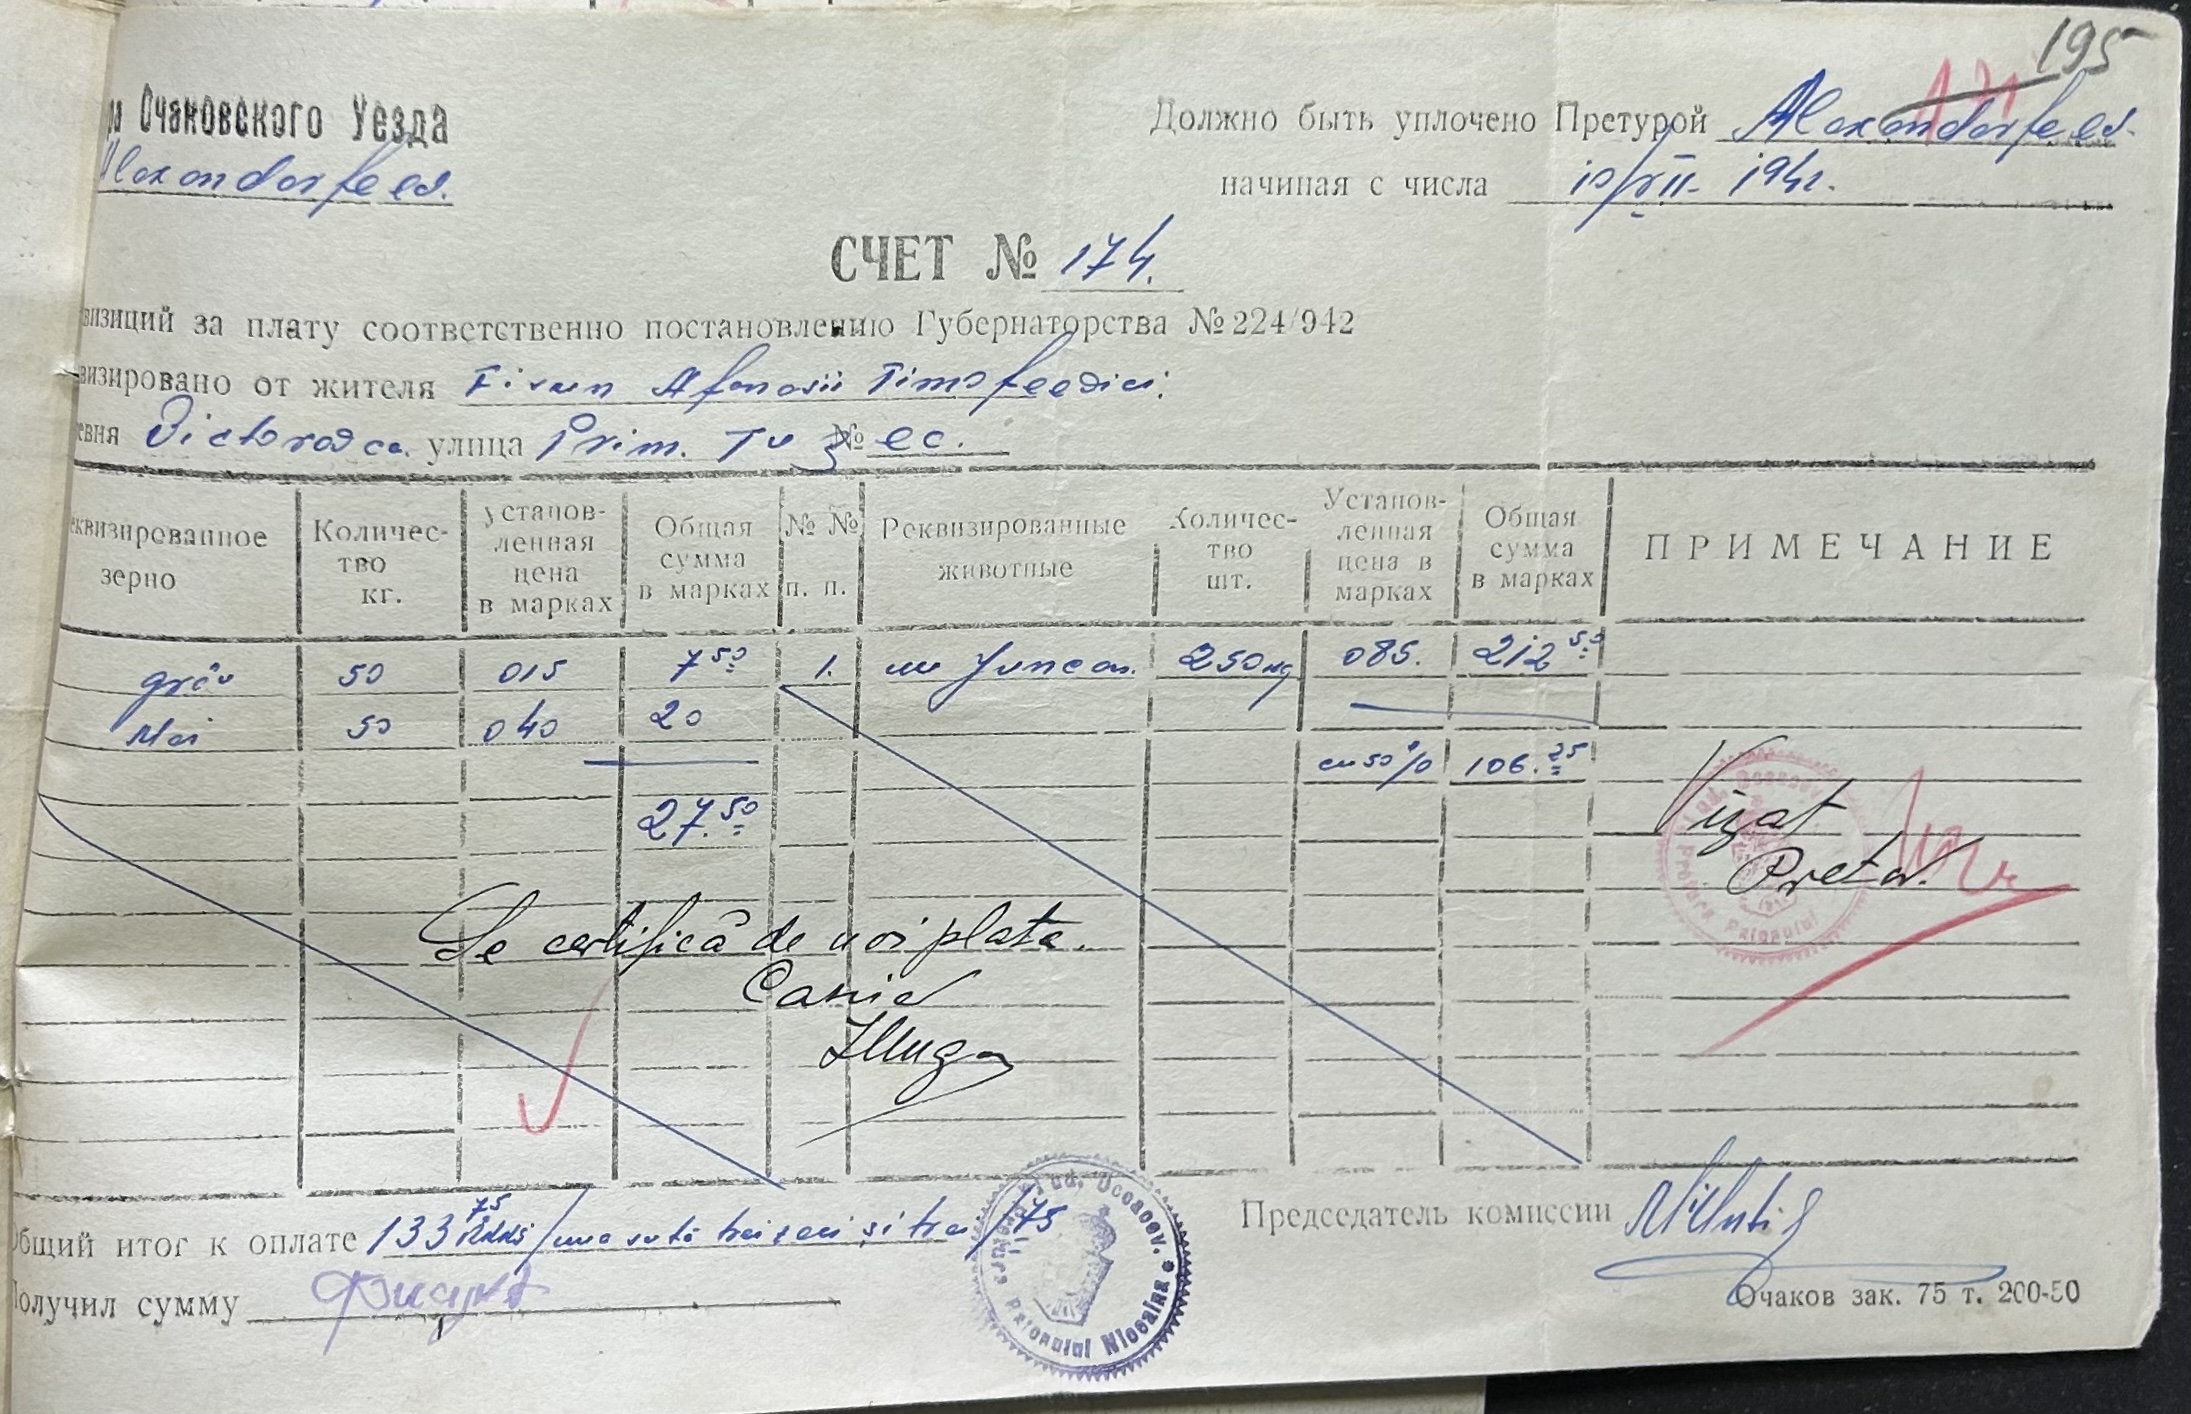 195
Очаковского Уезда
Alexandorfeld.
Должно быть уплочено Претурой Alexandorfeld.
начиная с числа 10/VII- 1942.
СЧЕТ № 174.
визиций за плату соответственно постановлению Губернаторства № 224/942
визировано от жителя Afanasii Timofeevici.
евня Victorovca. улица Prim. №
еквизированное зерно
Количес-тво кг.
установ-ленная цена в марках
Общая сумма в марках
№ № п. п.
Реквизированные животные
Количес-тво шт.
Установ-ленная цена в марках
Общая сумма в марках
ПРИМЕЧАНИЕ
grâu 50 015 7 50 1. un Juncan. 250 kg 085. 212 50
Mei 50 040 20
cu 50% 106.25
27.50
Vizat
Pretor.
Se certifică de noi plata.
Casier
Общий итог к оплате 133 75 RKKS/una sută treizeci și trei/75
Председатель комиссии
Получил сумму
Jud. Oceacov. Pretura Raionului
Очаков зак. 75 т. 200-50